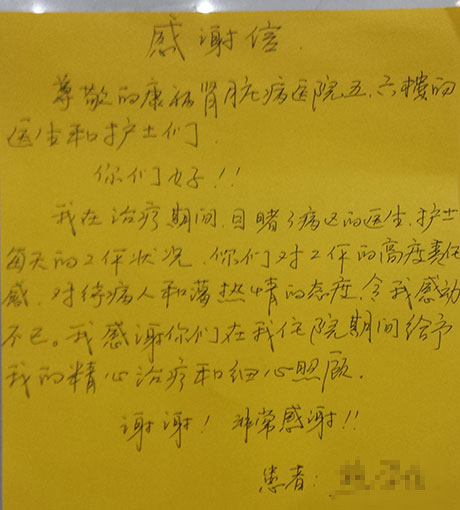 感谢信.
尊敬的康祈肾脏病医院五、六樓的
医生和护士们.
你们好!!
我在治疗期间,目睹了病区的医生,护士
每天的工作状况,你们对工作的高度责任
感,对待病人和蔼热情的态度,令我感动
不已。我感谢你们在我住院期间给予
我的精心治疗和细心照顾.
谢谢! 非常感谢!!
患者: